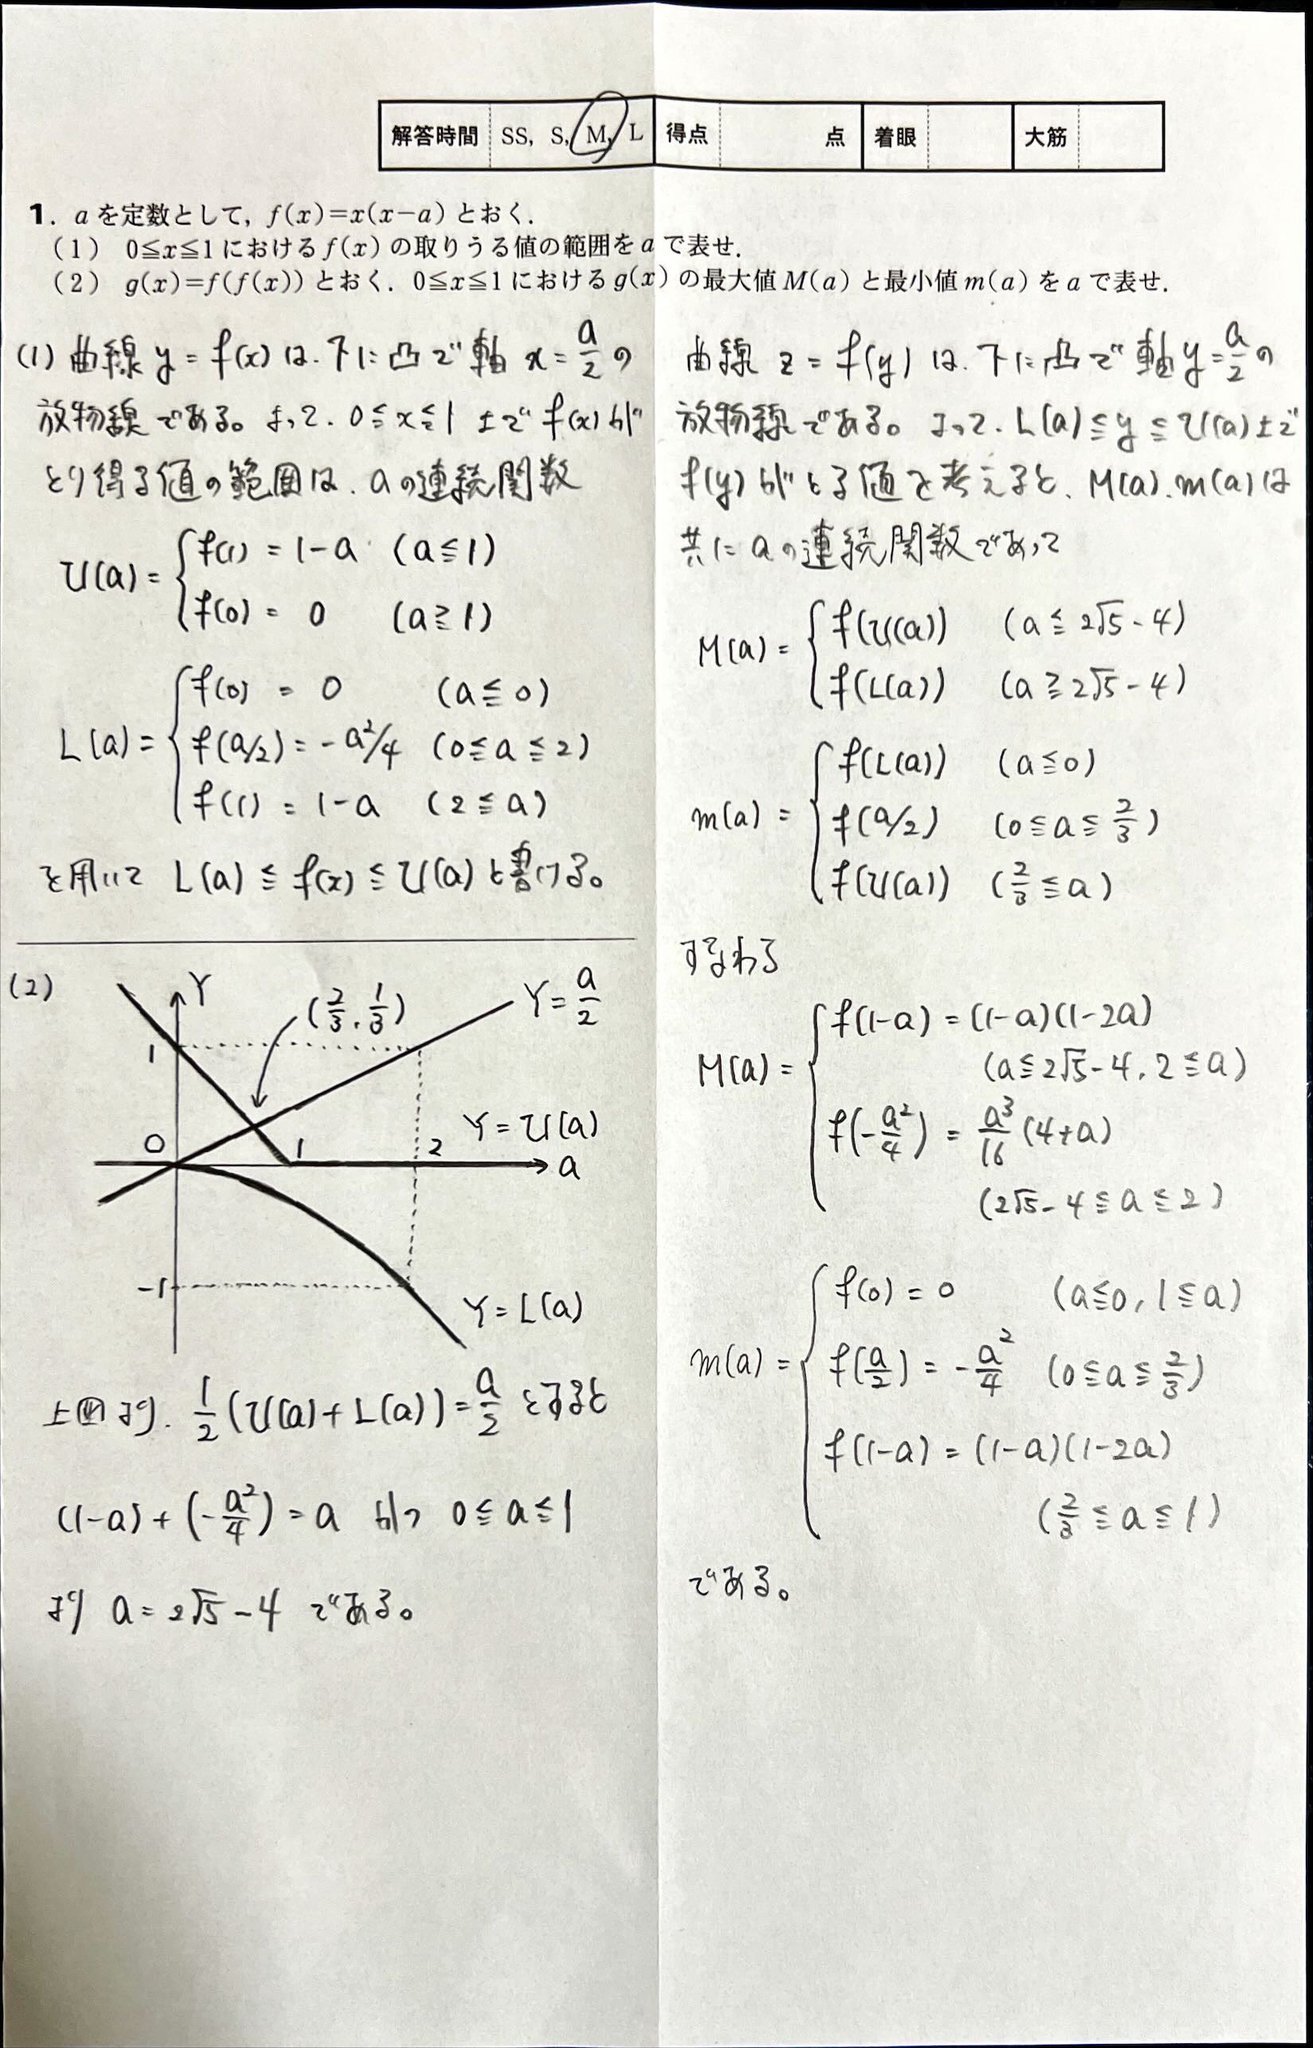 解答時間 SS, S, M, L 得点 点 着眼 大筋
1. aを定数として, f(x)=x(x−a) とおく.
(1) 0≦x≦1 における f(x) の取りうる値の範囲を a で表せ.
(2) g(x)=f(f(x)) とおく. 0≦x≦1 における g(x) の最大値 M(a) と最小値 m(a) を a で表せ.
(1) 曲線 y = f(x) は、下に凸で軸 x = a/2 の
放物線である。よって、0 ≦ x ≦ 1 上で f(x) が
とり得る値の範囲は、aの連続関数
U(a) = { f(1) = 1-a (a ≦ 1)
f(0) = 0 (a ≧ 1)
L(a) = { f(0) = 0 (a ≦ 0)
f(a/2) = -a²/4 (0 ≦ a ≦ 2)
f(1) = 1-a (2 ≦ a)
を用いて L(a) ≦ f(x) ≦ U(a) と書ける。
(2)
Y
(2/3, 1/3)
Y = a/2
1
0
1
2
Y = U(a)
a
-1
Y = L(a)
上図より、1/2 (U(a) + L(a)) = a/2 とすると
(1-a) + (-a²/4) = a かつ 0 ≦ a ≦ 1
より a = 2√5 - 4 である。
曲線 z = f(y) は、下に凸で軸 y = a/2 の
放物線である。よって、L(a) ≦ y ≦ U(a) 上で
f(y) がとる値を考えると、M(a), m(a) は
共に a の連続関数であって
M(a) = { f(U(a)) (a ≦ 2√5 - 4)
f(L(a)) (a ≧ 2√5 - 4)
m(a) = { f(L(a)) (a ≦ 0)
f(a/2) (0 ≦ a ≦ 2/3)
f(U(a)) (2/3 ≦ a)
すなわち
M(a) = { f(1-a) = (1-a)(1-2a)
(a ≦ 2√5 - 4, 2 ≦ a)
f(-a²/4) = a³/16 (4+a)
(2√5 - 4 ≦ a ≦ 2)
m(a) = { f(0) = 0 (a ≦ 0, 1 ≦ a)
f(a/2) = -a²/4 (0 ≦ a ≦ 2/3)
f(1-a) = (1-a)(1-2a)
(2/3 ≦ a ≦ 1)
である。